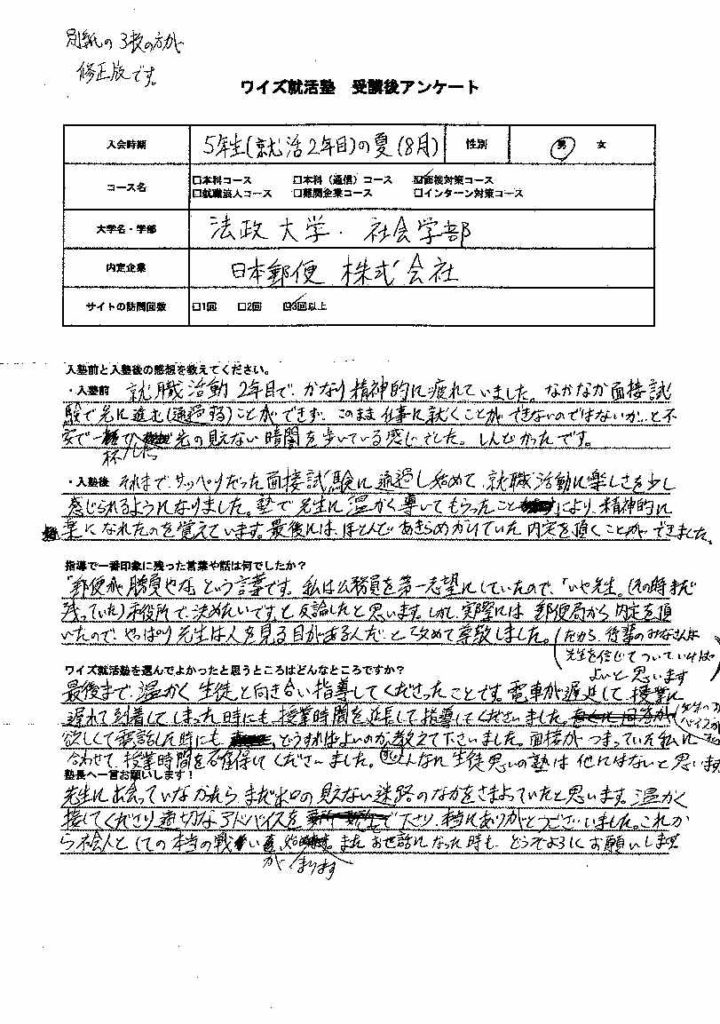 別紙の3枚の方が
修正版です。
ワイズ就活塾 受講後アンケート
入会時期 5年生(就活2年目)の夏(8月) 性別 男 女
コース名 □本科コース □本科(通信)コース ☑面接対策コース
□就職浪人コース □難関企業コース □インターン対策コース
大学名・学部 法政大学・社会学部
内定企業 日本郵便 株式会社
サイトの訪問回数 □1回 □2回 ☑3回以上
入塾前と入塾後の感想を教えてください。
・入塾前 就職活動2年目で、かなり精神的に疲れていました。なかなか面接試
験で先に進む(通過する)ことができず、このまま仕事に就くことができないのではないか…と不
安で一杯でした 先の見えない暗闇を歩いている感じでした。しんどかったです。
・入塾後 それまでサッパリだった面接試験に通過し始めて、就職活動に楽しさを少し
感じられるようになりました。塾で先生に温かく導いてもらったことにより、精神的に
楽になれたのを覚えています。最後には、ほとんどあきらめかけていた内定を頂くことができました。
指導で一番印象に残った言葉や話は何でしたか?
「郵便が勝負やな」という言葉です。私は公務員を第一志望にしていたので、「いや先生。(その時まだ
残っていた)市役所で決めたいです」と反論したと思います。しかし、実際には郵便局から内定を頂
いたので、やっぱり先生は人を見る目があるんだ、と改めて尊敬しました。(だから、後輩のみなさんは
先生を信じてついていけば
よいと思います)
ワイズ就活塾を選んでよかったと思うところはどんなところですか?
最後まで、温かく生徒と向き合い指導してくださったことです。電車が遅延して、授業に
遅れて到着してしまった時にも、授業時間を延長して指導してくださいました。
欲しくて電話した時にも、どうすればよいのか教えて下さいました。面接がつまっていた私に
合わせて、授業時間を確保してくださいました。こんなに生徒思いの塾は他にはないと思います
塾長へ一言お願いします!
先生に出会っていなかったら、まだ出口の見えない迷路のなかをさまよっていたと思います。温かく
接してくださり適切なアドバイスを下さり、本当にありがとうございました。これか
ら社会人としての本当の戦いが始まります またお世話になった時も、どうぞよろしくお願いします